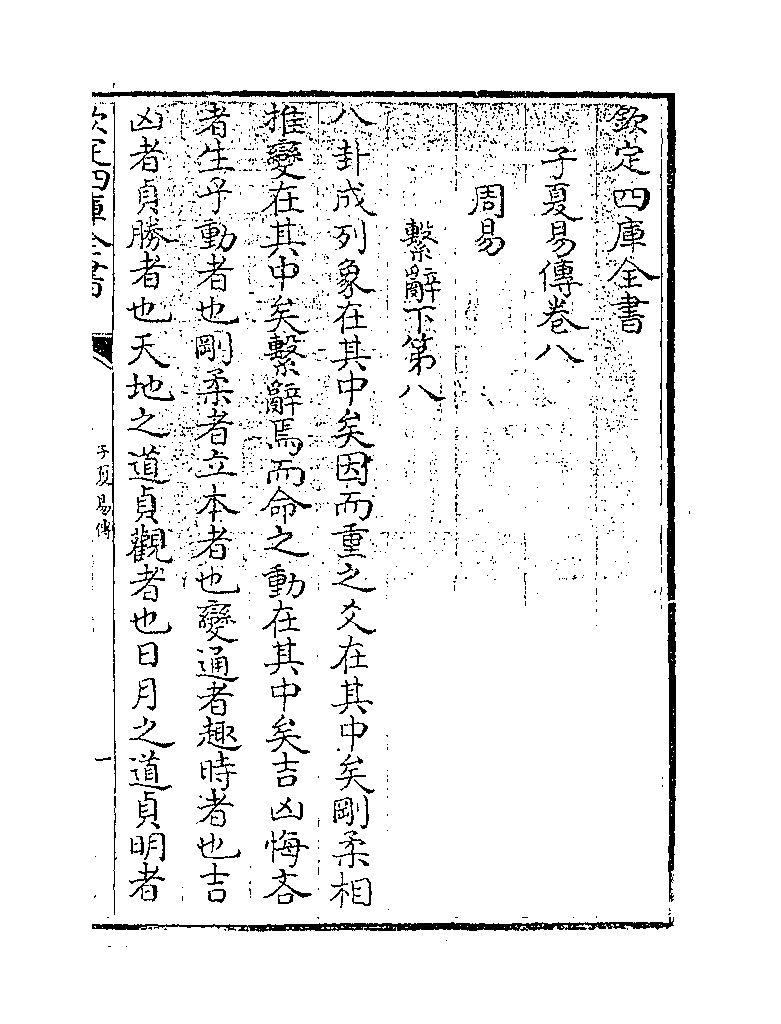 欽定四庫全書
子夏易傳卷八
周易
繫辭下第八
八卦成列象在其中矣因而重之爻在其中矣剛柔相
推變在其中矣繫辭焉而命之動在其中矣吉凶悔吝
者生乎動者也剛柔者立本者也變通者趣時者也吉
凶者貞勝者也天地之道貞觀者也日月之道貞明者
欽定四庫全書
子夏易傳
一